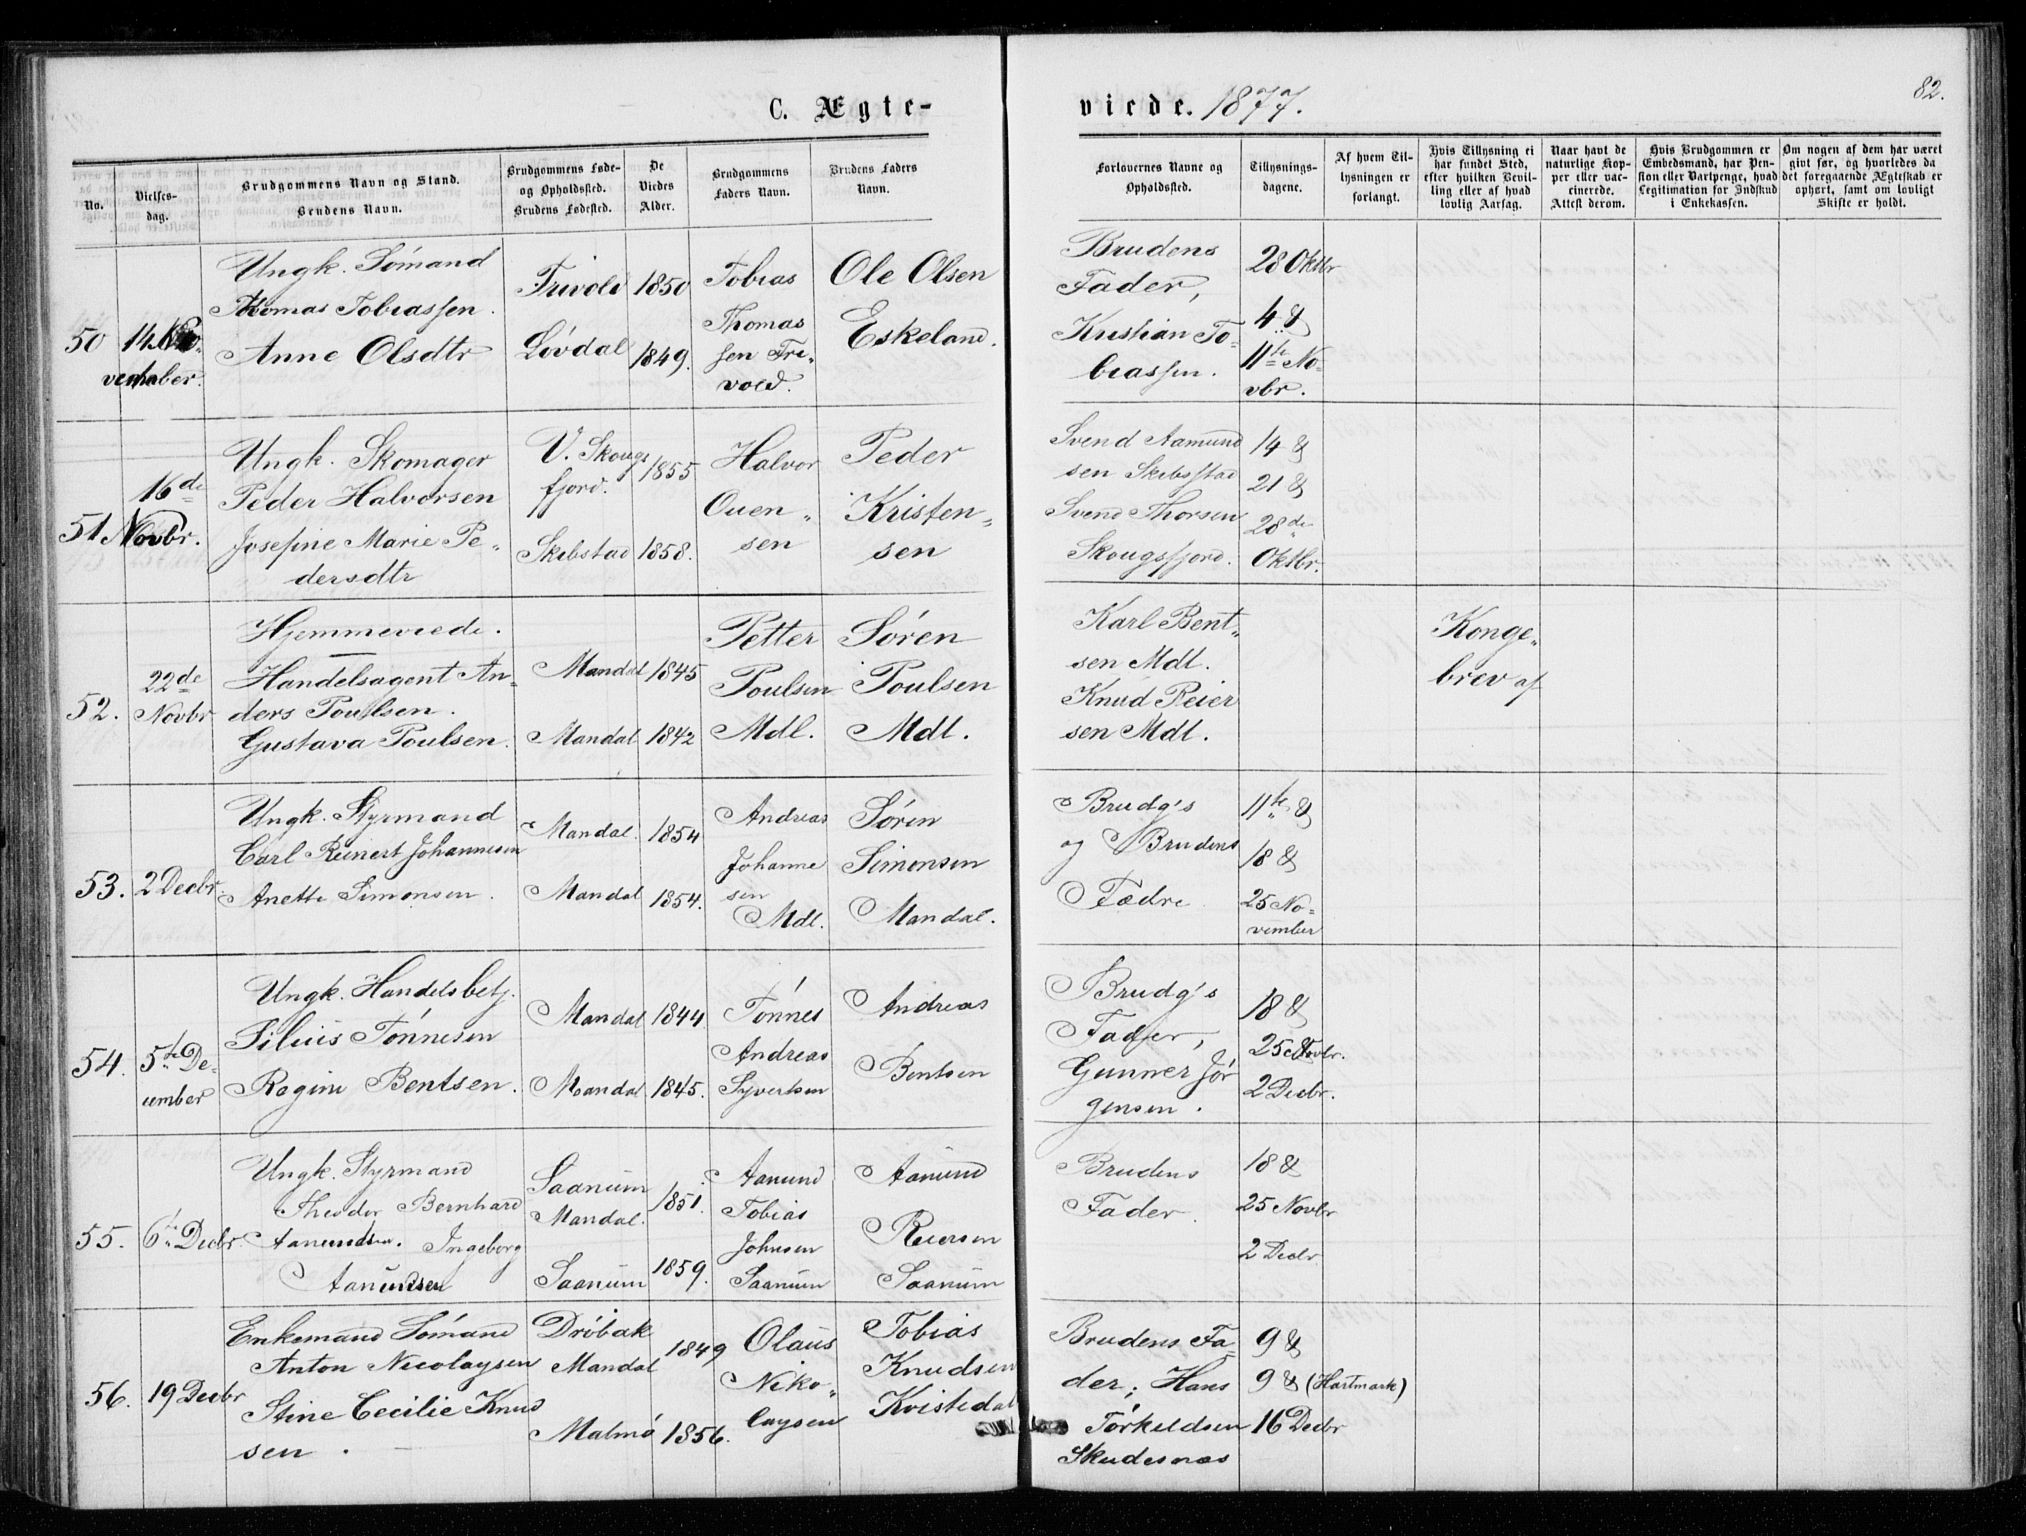 82.
C. Ægte-
viede. 1877.
No.
Vielses-
dag.
Brudgommens Navn og Stand.
Brudens Navn.
Brudgommens Føde-
og Opholdssted.
Brudens Fødested.
De
Viedes
Alder.
Brudgommens
Faders Navn.
Brudens Faders
Navn.
Forlovernes Navne og
Opholdssted.
Tillysnings-
dagene.
Af hvem Til-
lysningen er
forlangt.
Hvis Tillysning ei
har fundet Sted,
efter hvilken Bevil-
ling eller af hvad
lovlig Aarsag.
Naar havt de
naturlige Kop-
per eller vac-
cinerede.
Attest derom.
Hvis Brudgommen er
Embedsmand, har Pen-
sion eller Vartpenge, hvad
Legitimation for Indskud
i Enkekassen.
Om nogen af dem har været
givt før, og hvorledes da
det foregaaende Ægteskab er
ophørt, samt om lovligt
Skifte er holdt.
50
14 No-
vember.
Ungk. Sömand
Thomas Tobiassen.
Anne Olsdtr
Trivold
Lövdal
1850
1849.
Tobias
Thomas
sen Tri-
vold.
Ole Olsen
Eskeland.
Brudens
Fader,
Kristian To-
biassen.
28 Oktbr
4 &
11te No-
vbr.
51
16de
Novbr.
Ungk. Skomager
Peder Halvorsen
Josefine Marie Pe-
dersdtr
V. Skougs
fjord.
Skibstad
1855
1858.
Halvor
Ouen-
sen
Peder
Kristen-
sen
Svend Aamund
sen Skibsstad
Svend Thorsen
Skougsfjord.
14 &
21 &
28de
Oktbr.
52.
22de
Novbr
Hjemmeviede.
Handelsagent An-
ders Poulsen.
Gustava Poulsen.
Mandal
Mandal
1845
1842
Petter
Poulsen
Mdl.
Sören
Poulsen
Mdl.
Karl Bent-
sen Mdl.
Knud Reier
sen Mdl.
Konge-
brev af
53.
2 Decbr.
Ungk. Styrmand
Carl Reinert Johannesen
Anette Simonsen.
Mandal.
Mandal
1854
1854.
Andreas
Johanne
sen
Mdl.
Sören
Simonsen
Mandal.
Brudg's
og Brudens
Fædre
11te &
18 &
25 No-
vember
54.
5te De-
cember
Ungk. Handelsbetj.
Silius Tönnesen
Regine Bentsen.
Mandal
Mandal
1844
1845.
Tönnes
Andreas
Syvertsen
Andreas
Bentsen
Brudg's
Fader,
Gunner Jör
gensen.
18 &
25 Novbr.
2 Decbr.
55.
6te Decbr.
Ungk. Styrmand
Theodor Bernhard
Aanundsen. Ingeborg
Aanundsen
Saanum
Mandal.
Saanum
1851.
1859.
Aanund
Tobias
Johnsen
Saanum
Aanund
Reiersen
Saanum
Brudens
Fader.
18 &
25 Novbr
2 Decbr
56.
19 Decbr
Enkemand Sömand
Anton Nicolaysen
Stine Cecilie Knud
sen.
Dröbak
Mandal
Malmö
1849
1856.
Olaus
Niko-
laysen
Tobias
Knudsen
Kvistedal
Brudens Fa-
der; Hans
Törkeldsen
Skudesnæs
9 &
9 & (Hartmark)
16 Decbr